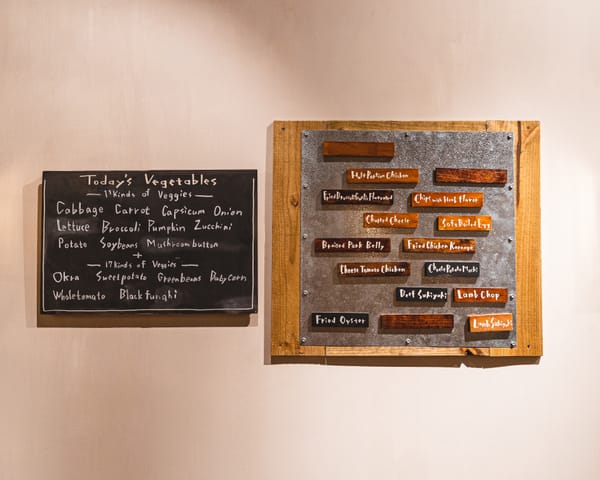 Today's Vegetables
13 Kinds of Veggies
Cabbage Carrot Capsicum Onion
Lettuce Broccoli Pumpkin Zucchini
Potato Soybeans Mushroom button
+
17 kinds of Veggies
Okra Sweetpotato Greenbeans Babycorn
Wholetomato Black Funghi
Half Portion Chicken
Chips with Herb Flavor
Cheese
Soft Boiled Egg
Braised Pork Belly
Fried Chicken Karaage
Cheese Tomato Chicken
Beef Sukiyaki
Lamb Chop
Fried Oyster
Lamb Sukiyaki